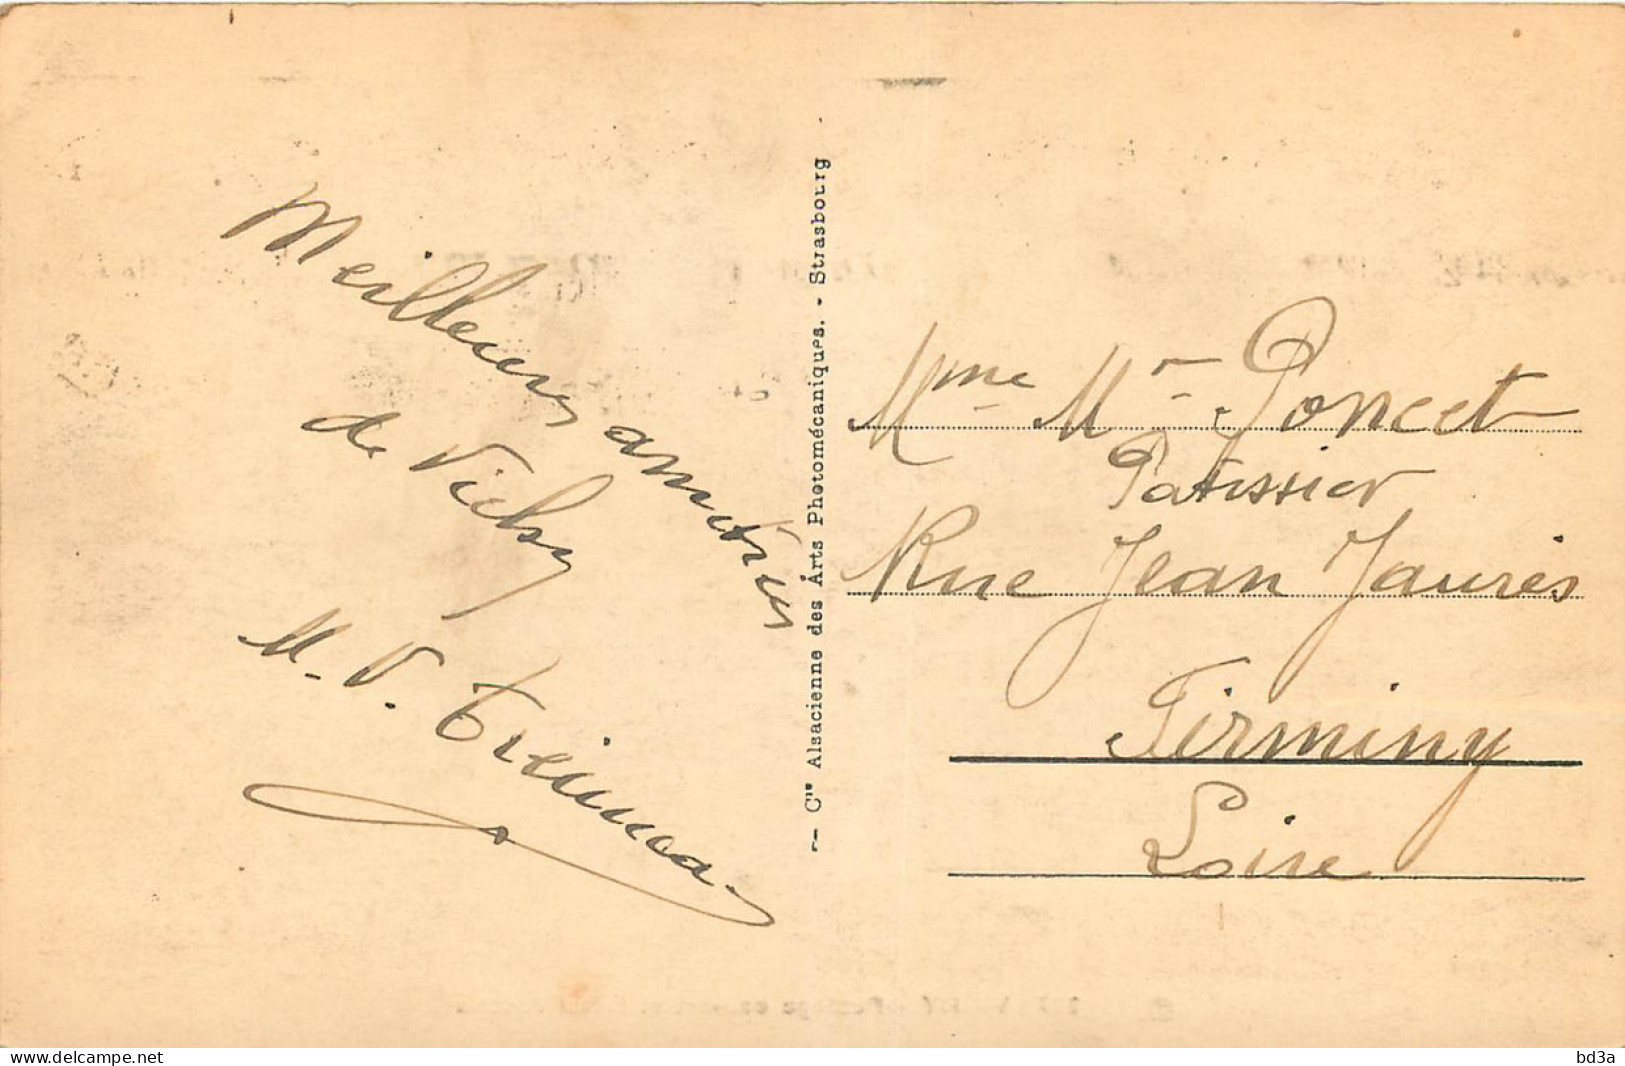 Meilleures amitiés
de Vichy
M. V.
Cie Alsacienne des Arts Photomécaniques. - Strasbourg
Mme Mr Poncet
Patissier
Rue Jean Jaurès
Firminy
Loire
www.delcampe.net
bd3a